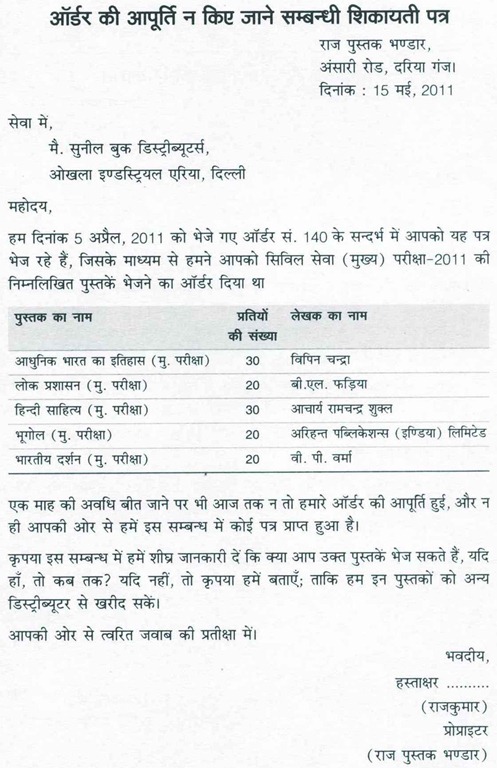 ऑर्डर की आपूर्ति न किए जाने सम्बन्धी शिकायती पत्र
राज पुस्तक भण्डार,
अंसारी रोड, दरिया गंज।
दिनांक : 15 मई, 2011
सेवा में,
मै. सुनील बुक डिस्ट्रीब्यूटर्स,
ओखला इण्डस्ट्रियल एरिया, दिल्ली
महोदय,
हम दिनांक 5 अप्रैल, 2011 को भेजे गए ऑर्डर सं. 140 के सन्दर्भ में आपको यह पत्र
भेज रहे हैं, जिसके माध्यम से हमने आपको सिविल सेवा (मुख्य) परीक्षा-2011 की
निम्नलिखित पुस्तकें भेजने का ऑर्डर दिया था
पुस्तक का नाम प्रतियों की संख्या लेखक का नाम
आधुनिक भारत का इतिहास (मु. परीक्षा) 30 विपिन चन्द्रा
लोक प्रशासन (मु. परीक्षा) 20 बी.एल. फड़िया
हिन्दी साहित्य (मु. परीक्षा) 30 आचार्य रामचन्द्र शुक्ल
भूगोल (मु. परीक्षा) 20 अरिहन्त पब्लिकेशन्स (इण्डिया) लिमिटेड
भारतीय दर्शन (मु. परीक्षा) 20 वी. पी. वर्मा
एक माह की अवधि बीत जाने पर भी आज तक न तो हमारे ऑर्डर की आपूर्ति हुई, और न
ही आपकी ओर से हमें इस सम्बन्ध में कोई पत्र प्राप्त हुआ है।
कृपया इस सम्बन्ध में हमें शीघ्र जानकारी दें कि क्या आप उक्त पुस्तकें भेज सकते हैं, यदि
हाँ, तो कब तक? यदि नहीं, तो कृपया हमें बताएँ; ताकि हम इन पुस्तकों को अन्य
डिस्ट्रीब्यूटर से खरीद सकें।
आपकी ओर से त्वरित जवाब की प्रतीक्षा में।
भवदीय,
हस्ताक्षर ..........
(राजकुमार)
प्रोप्राइटर
(राज पुस्तक भण्डार)